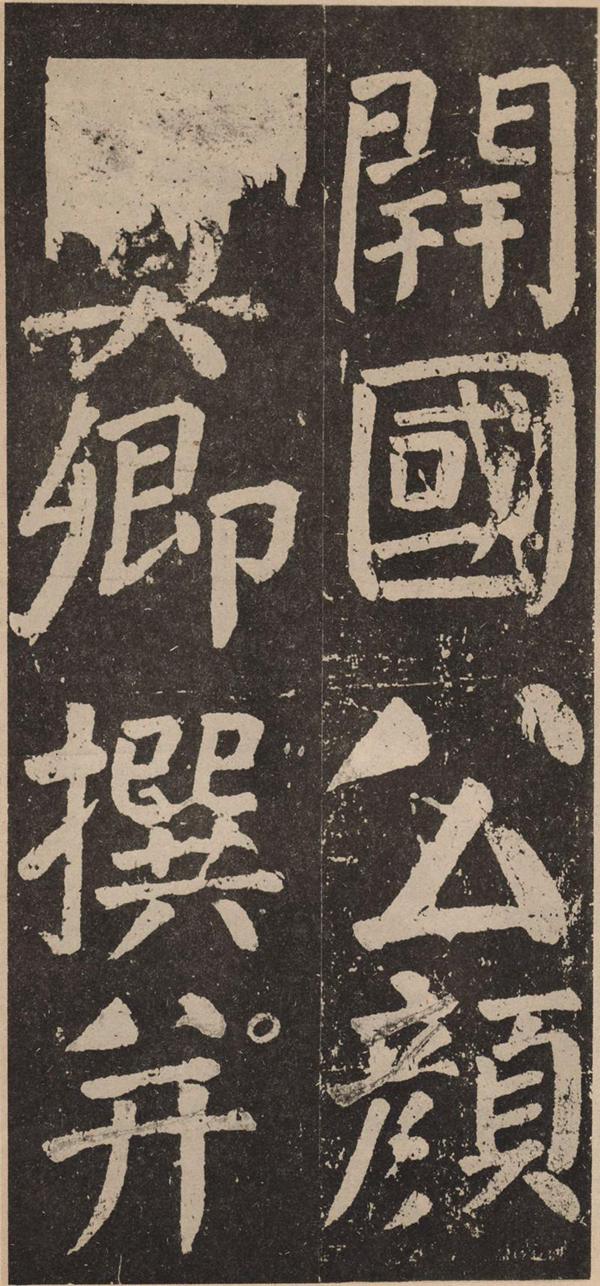 開國公顏
真卿撰并